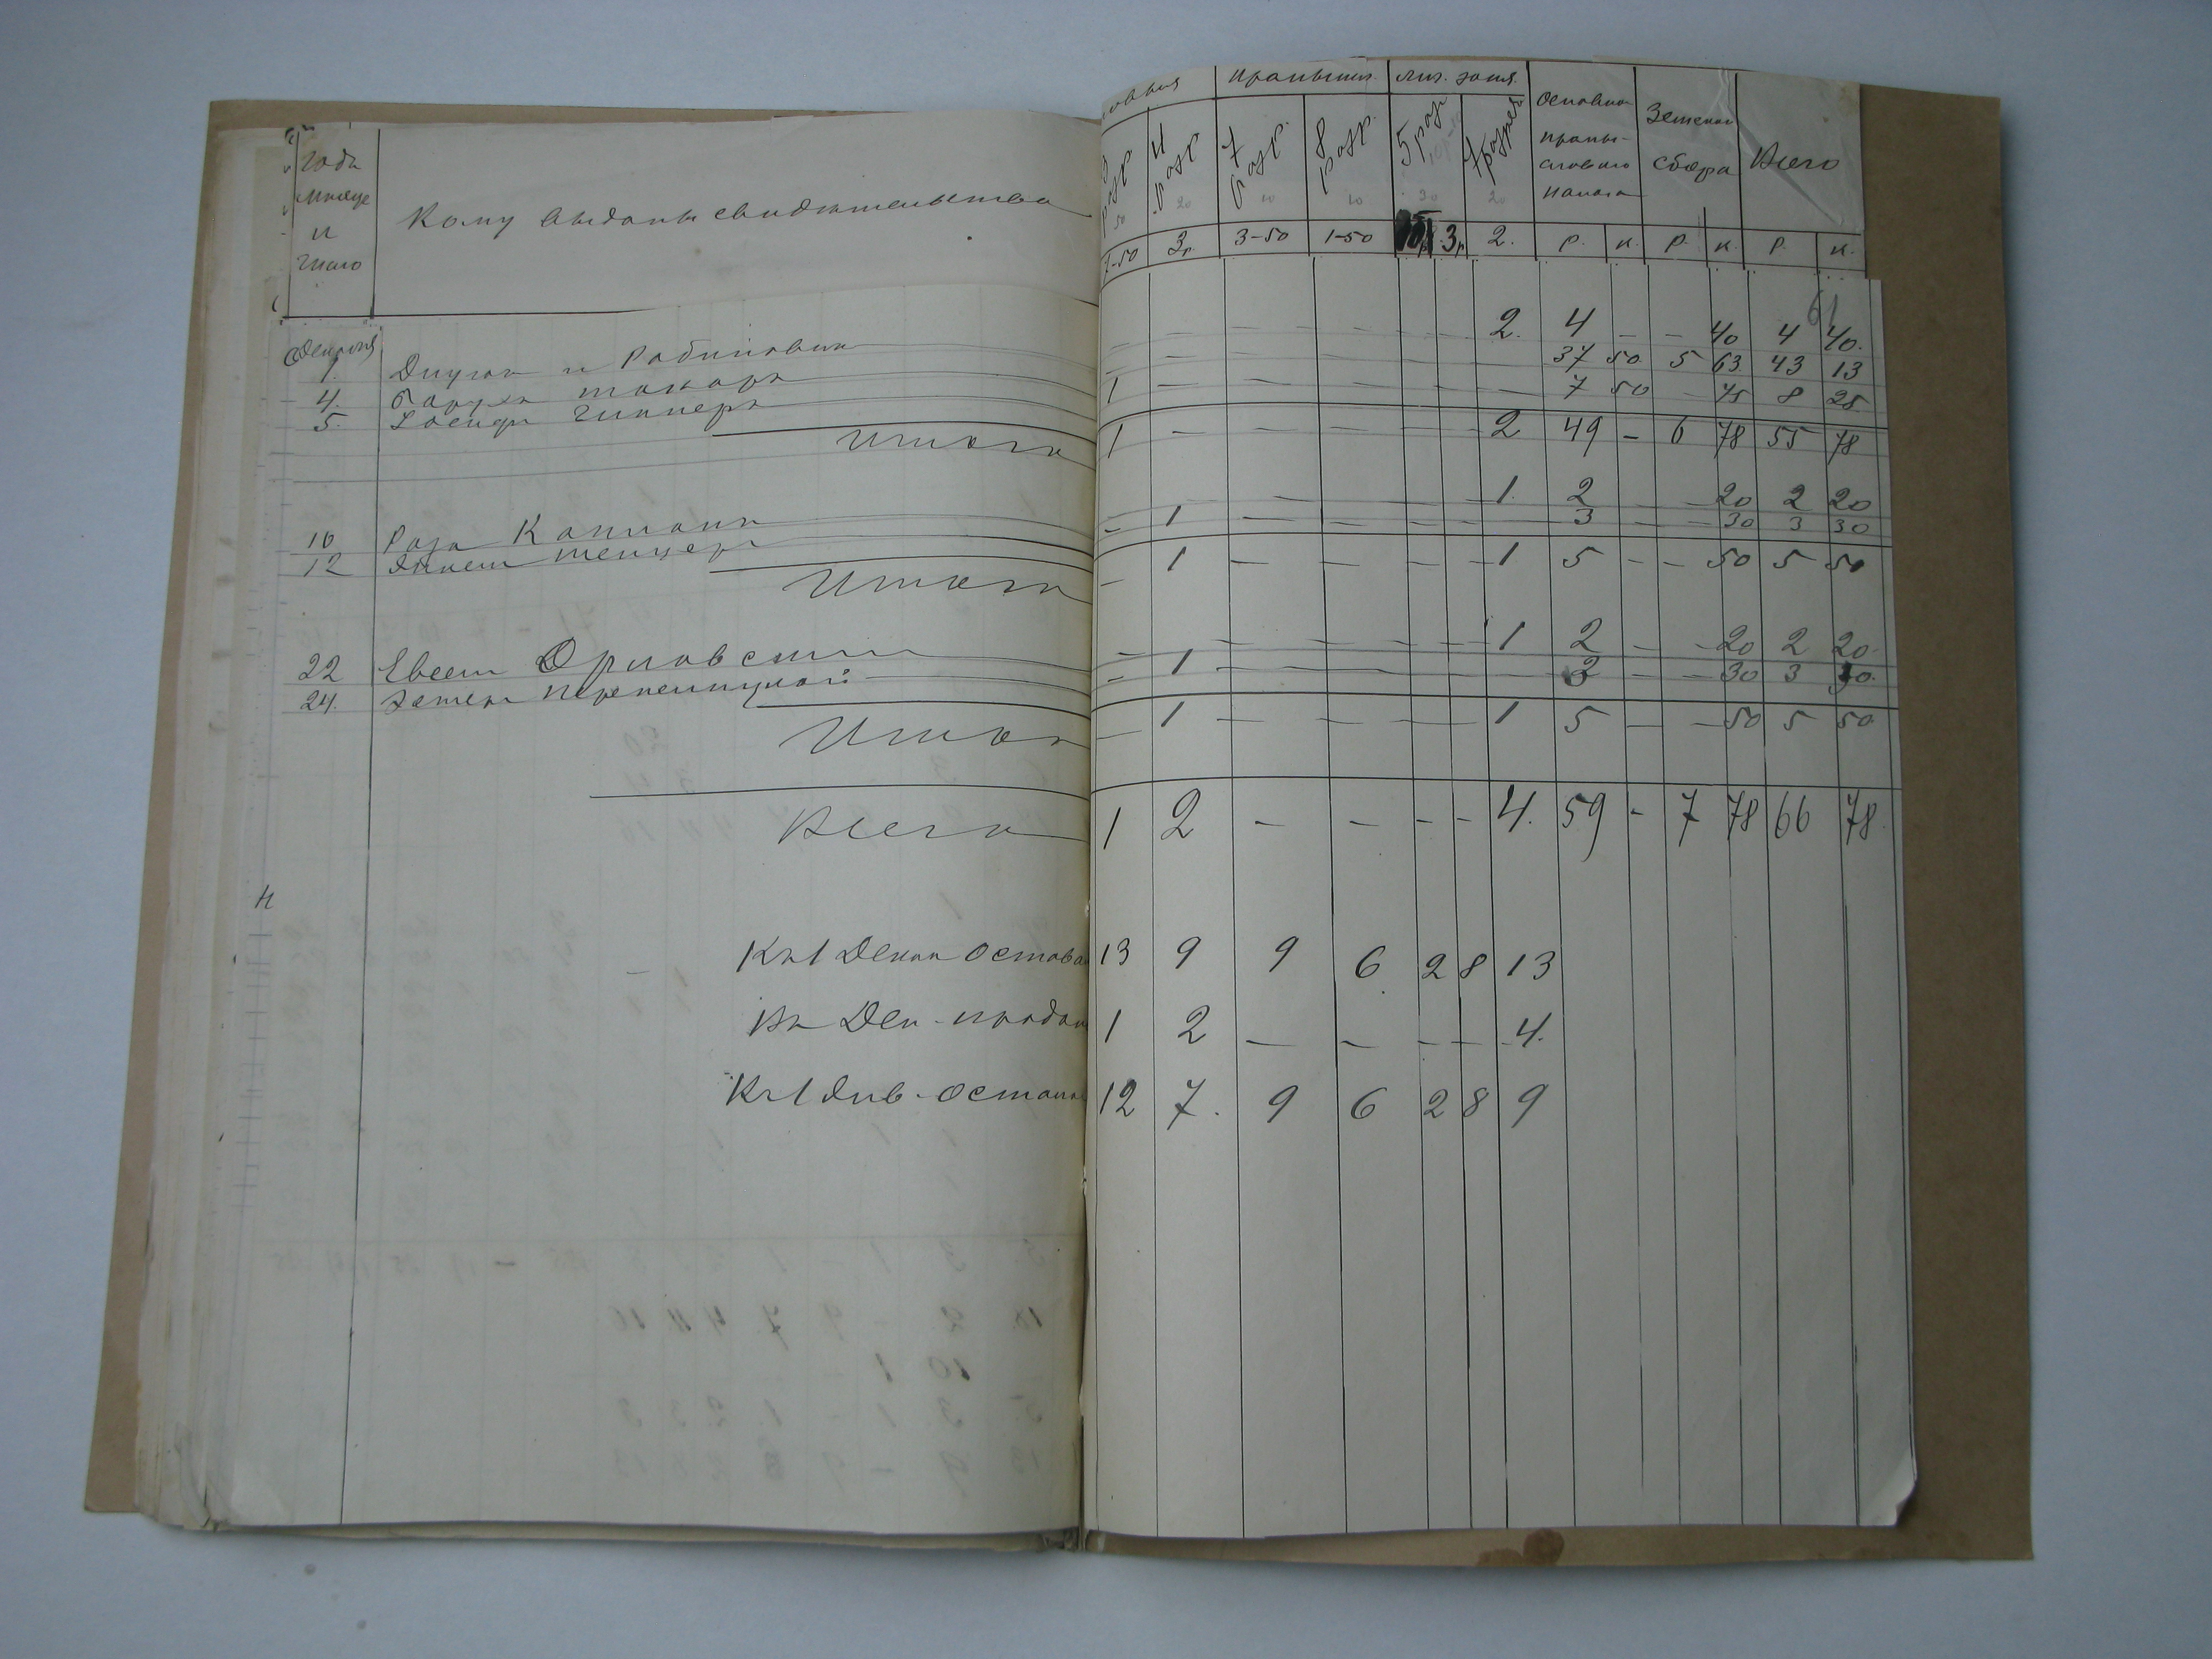 Года
месяца
и
число
Кому выданы свидетельства
промышл.
лич. заня.
3 разр.
4 разр.
7 разр.
8 разр.
5 разр
7 разряд
Основно
промы-
слового
налога
Земской
сбора
Всего
50 20 10 10 30 20
7-50 3р. 3-50 1-50 3р 2. р. к. р. к. р. к.
61
1. и Рабинович — — — — — 2. 4 — — 40 4 40.
4. токарь — — — — — 37 50 5 63 43 13
5. 1 — — — — — 7 50 — 75 8 25
Итого 1 — — — — — 2 49 — 6 78 55 78
10 Роза Каплань — — — — 1. 2 — — 20 2 20
12 — 1 — — — — — 3 — — 30 3 30
Итого — 1 — — — — 1 5 — — 50 5 50
22 Евсей Орловский — — — — — 1 2 — — 20 2 20
24. Эстеръ — 1 — — — — — 3 — — 30 3 30.
Итого — 1 — — — — 1 5 — — 50 5 50
Всего 1 2 — — — — 4. 59 — 7 78 66 78
Къ 1 Декаб 13 9 9 6 2 8 13
Въ Дек - продан 1 2 — — — — 4.
Къ 1 Янв - остаток 12 7. 9 6 2 8 9